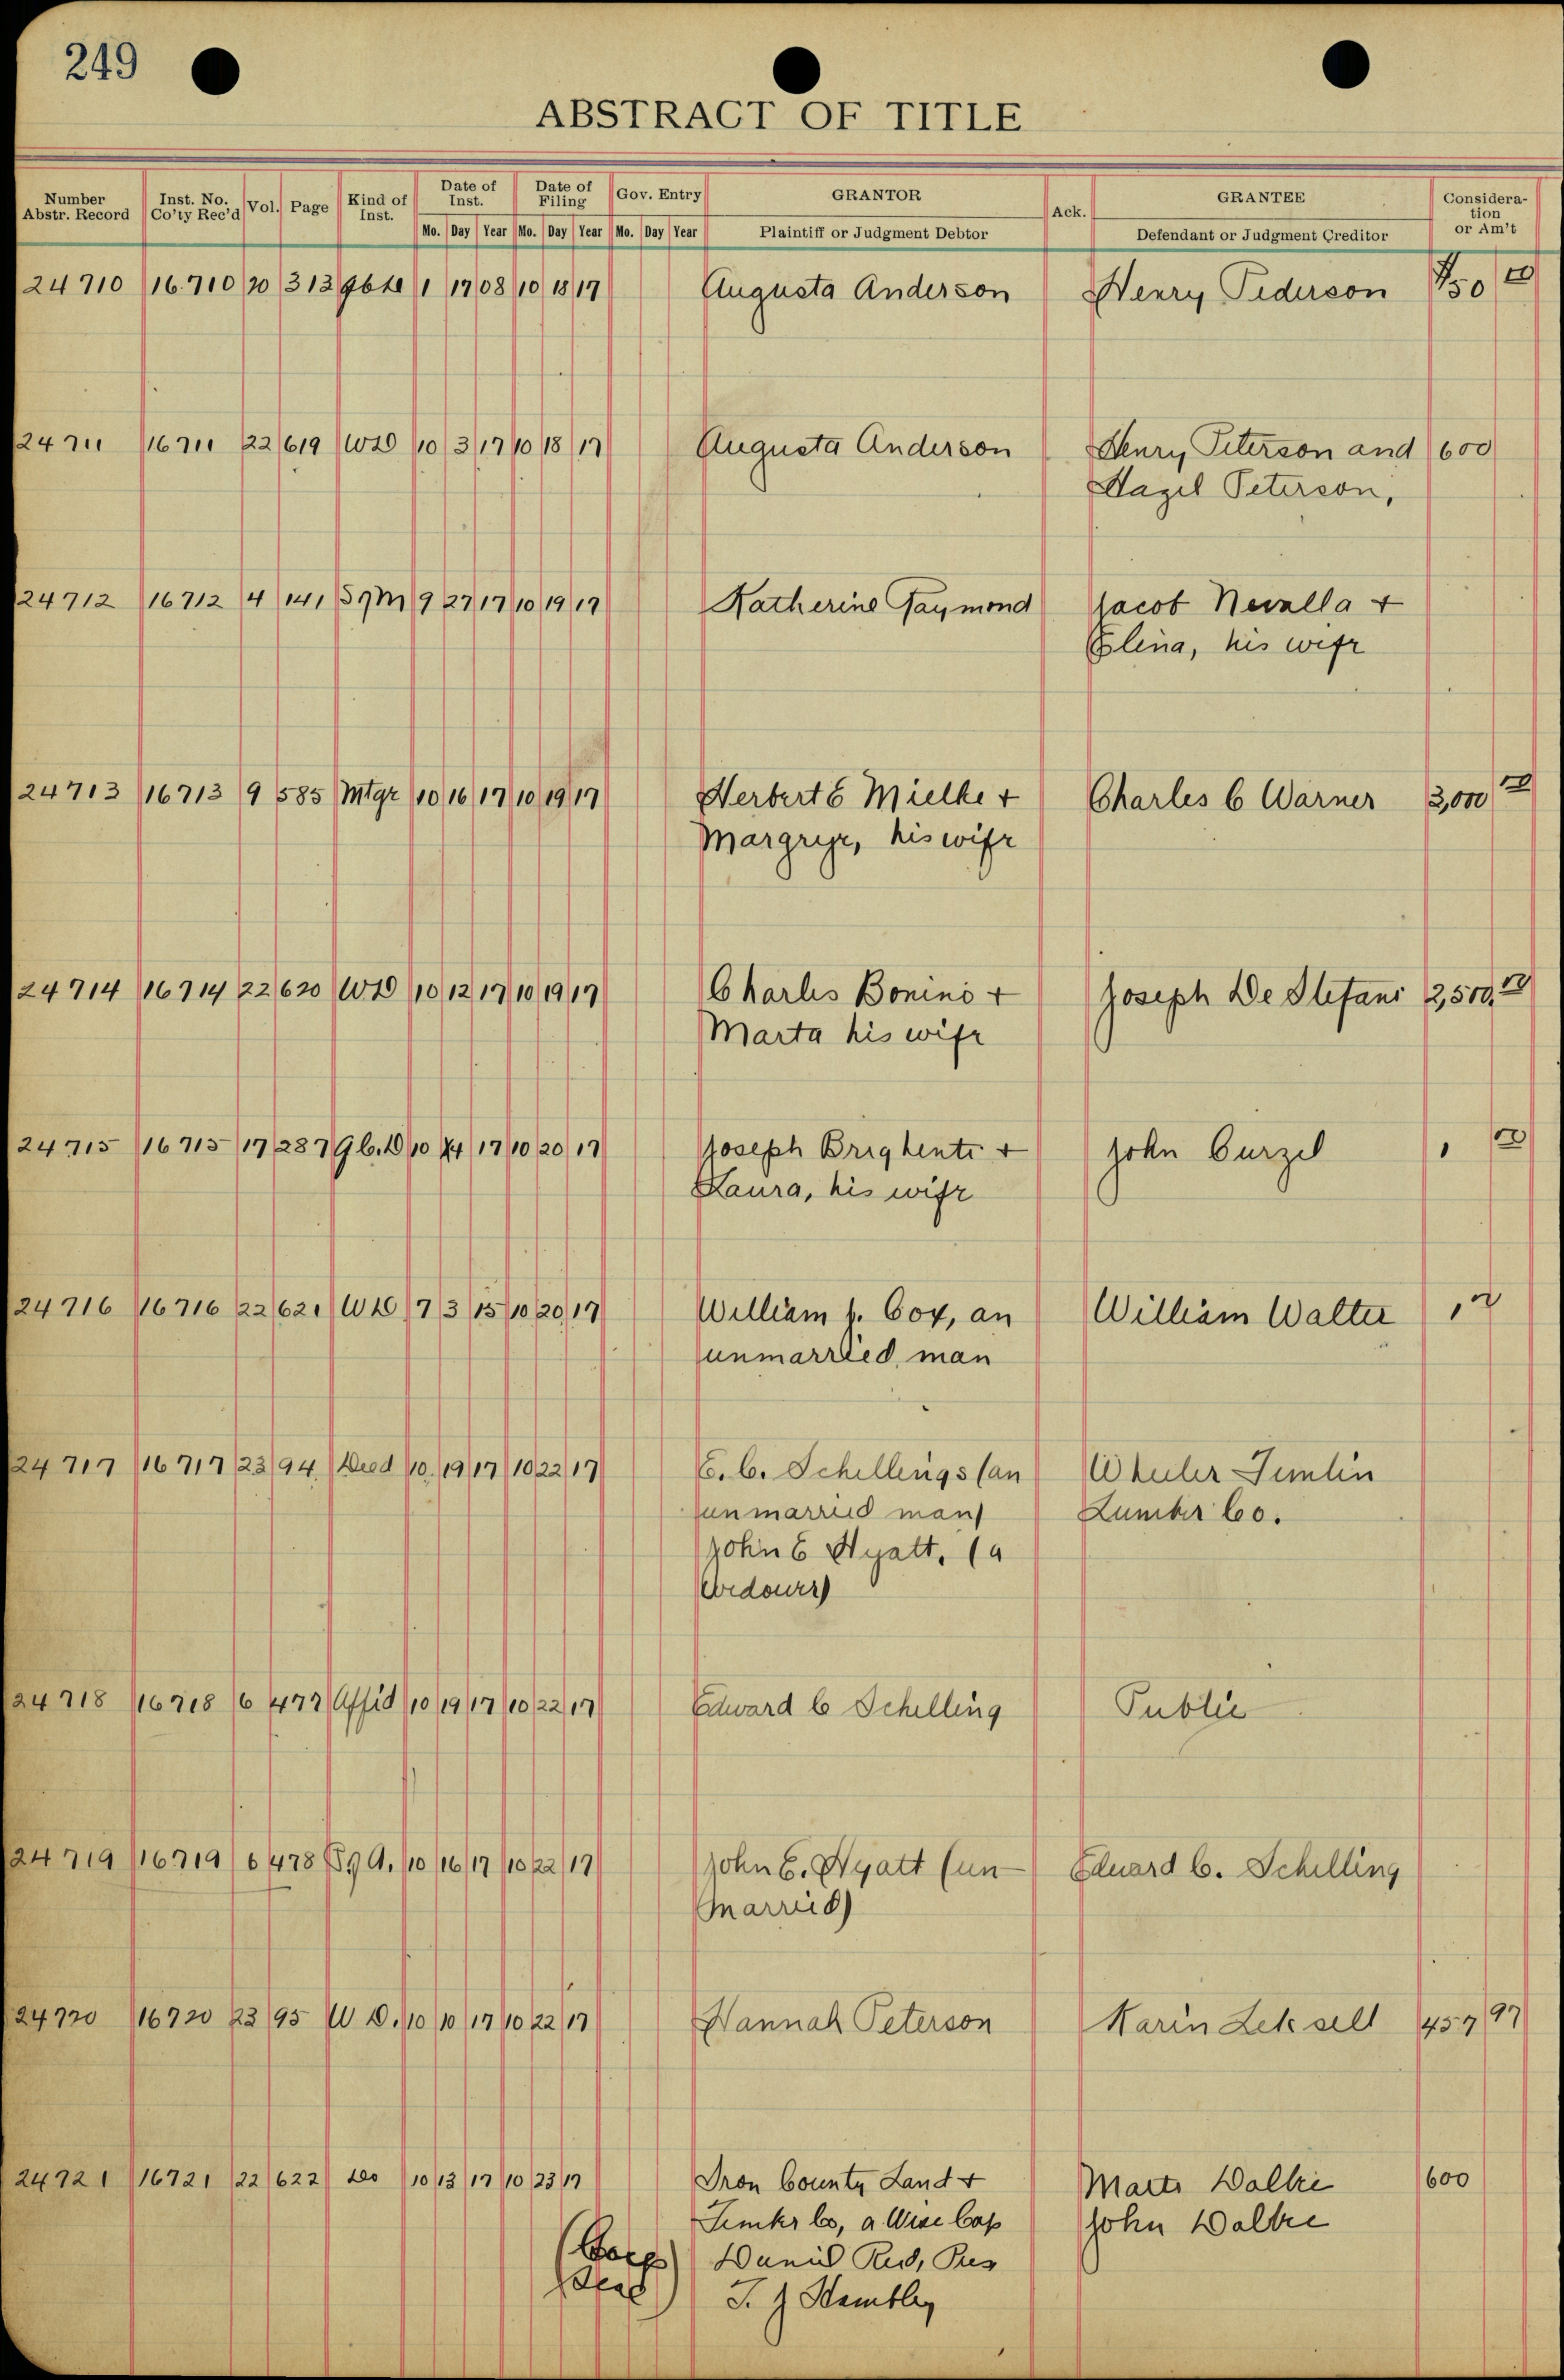 249
ABSTRACT OF TITLE
Number Abstr. Record Inst. No. Co'ty Rec'd Vol. Page Kind of Inst. Date of Inst. Date of Filing Gov. Entry GRANTOR Ack. GRANTEE Consideration or Am't
Mo. Day Year Mo. Day Year Mo. Day Year Plaintiff or Judgment Debtor Defendant or Judgment Creditor
24710 16.710 20 313 1 17 08 10 18 17 Augusta Anderson Henry Pederson
24711 16711 22 619 WD 10 3 17 10 18 17 Augusta Anderson Henry Peterson and 600
Hazel Peterson,
24712 16712 4 141 SgM 9 27 17 10 19 17 Katherine Jacob Nevalla +
Elina, his wife
24713 16713 9 585 Mtge 10 16 17 10 19 17 Herbert E Mielke + Charles C Warner 3,000 00
his wife
24714 16714 22 620 WD 10 12 17 10 19 17 Charles Bonino + Joseph De Stefani 2,500.00
Marta his wife
24715 16715 17 287 Q.C.D 10 17 10 20 17 Joseph Brighenti + John Curzel 1 00
Laura, his wife
24716 16716 22 621 WD 7 3 15 10 20 17 William J. Cox, an William Walter 1.00
unmarried man
24717 16717 23 94 Deed 10 19 17 10 22 17 E. C. Schellings (an Wheeler Timlin
unmarried man) Lumber Co.
John E Hyatt, (a
Widower)
24718 16718 6 477 Affid 10 19 17 10 22 17 Edward C Schelling Public
24719 16719 6 478 Ag. 10 16 17 10 22 17 John E. Hyatt (un- Eduard C. Schilling
married)
24720 16720 23 95 W D. 10 10 17 10 22 17 Hannah Peterson Karin Leksell 457 97
24721 16721 22 622 Do 10 13 17 10 23 17 Iron County Land + 600
Co, a Wise Cop John
(Corp Reid, Pres
Seal) T. J Hambley